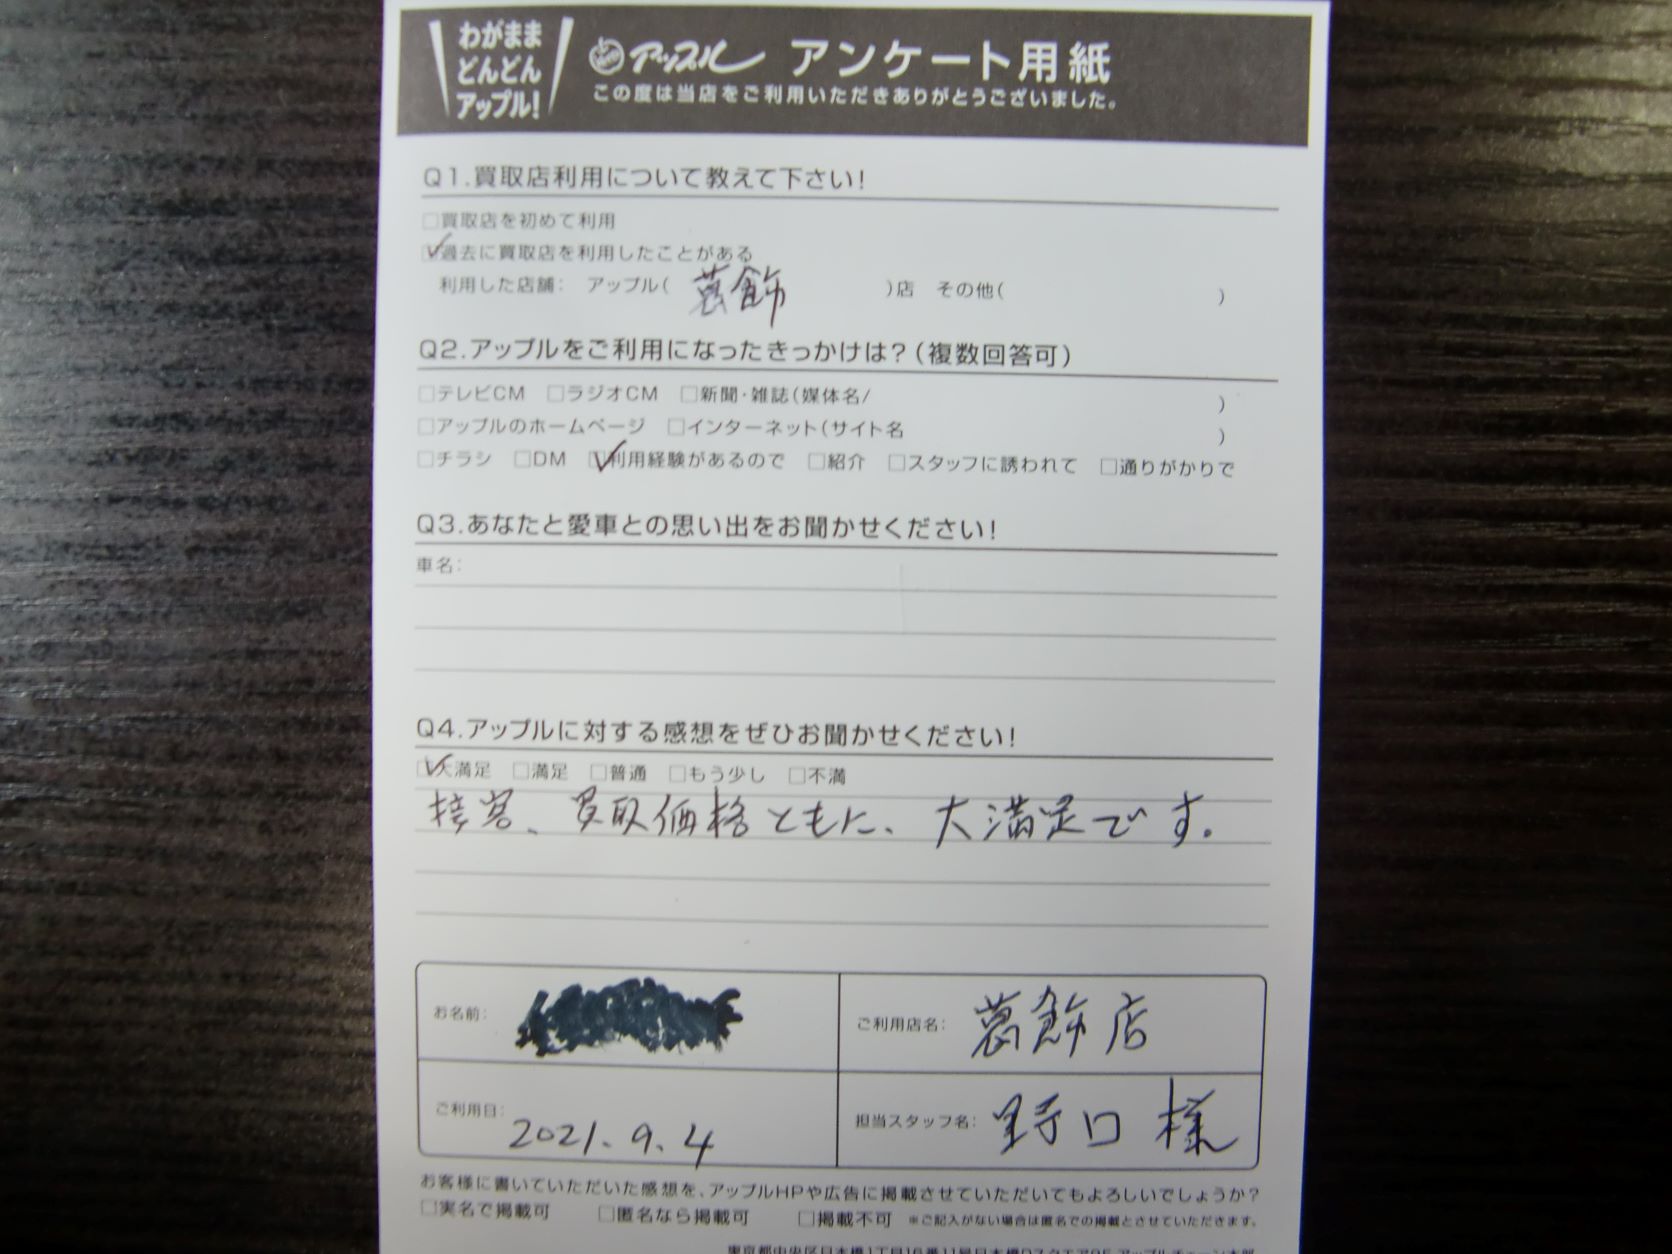 わがまま
どんどん
アップル!
アップル アンケート用紙
この度は当店をご利用いただきありがとうございました。
Q1.買取店利用について教えて下さい!
□買取店を初めて利用
☑過去に買取店を利用したことがある
利用した店舗: アップル( 葛飾 )店 その他( )
Q2.アップルをご利用になったきっかけは?(複数回答可)
□テレビCM □ラジオCM □新聞・雑誌(媒体名/ )
□アップルのホームページ □インターネット(サイト名 )
□チラシ □DM ☑利用経験があるので □紹介 □スタッフに誘われて □通りがかりで
Q3.あなたと愛車との思い出をお聞かせください!
車名:
Q4.アップルに対する感想をぜひお聞かせください!
☑大満足 □満足 □普通 □もう少し □不満
接客、買取価格ともに、大満足です。
お名前:
ご利用店名: 葛飾店
ご利用日: 2021.9.4
担当スタッフ名: 野口様
お客様に書いていただいた感想を、アップルHPや広告に掲載させていただいてもよろしいでしょうか?
□実名で掲載可 □匿名なら掲載可 □掲載不可 ※ご記入がない場合は匿名での掲載とさせていただきます。